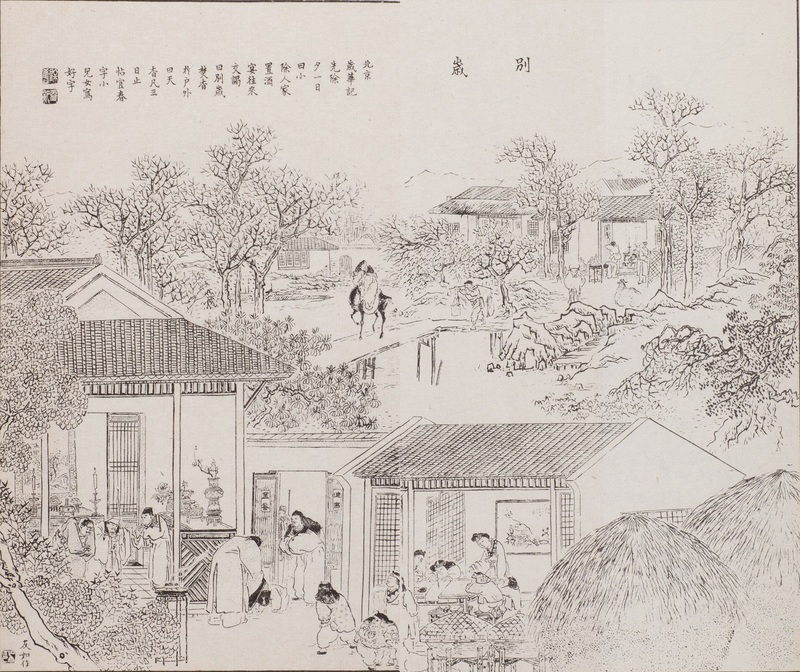 別嵗
北京
嵗華記
先除
夕一日
曰小
除人家
置酒
宴往來
交謁
曰別嵗
焚香
於戶外
曰天
香凡三
日止
帖宜春
字小
兒女寫
好字
友如作